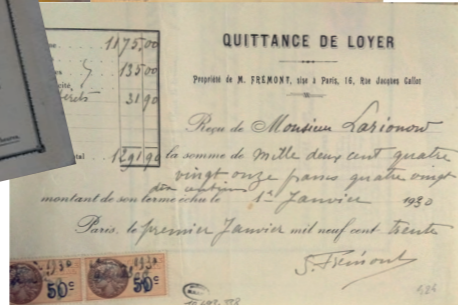 1175,00
135,00
31 90
1291 90
QUITTANCE DE LOYER
Propriété de M. FRÉMONY, sise à Paris, 16, Rue Jacques Callot
Reçu de Monsieur Larionow
la somme de Mille deux cent quatre
vingt onze francs quatre vingt
dix centimes
montant de son terme échu le 1er Janvier 1930
Paris, le premier Janvier mil neuf cent trente
50c 50c